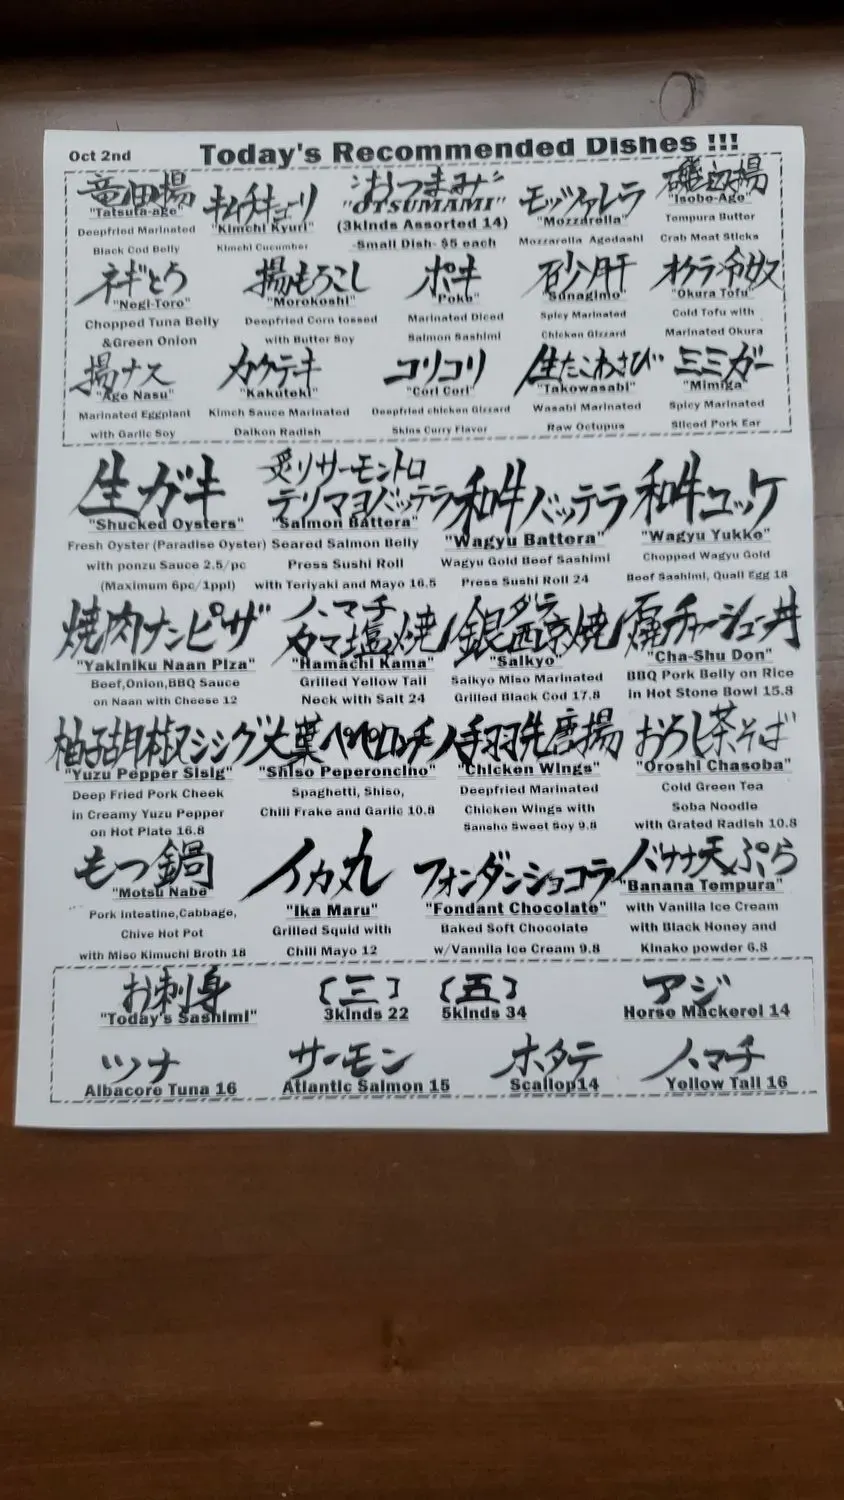 Oct 2nd
Today's Recommended Dishes !!!
竜田揚
"Tatsuta-age"
Deepfried Marinated
Black Cod Belly
キムチキューリ
"Kimchi Kyuri"
Kimchi Cucumber
おつまみ
"OTSUMAMI"
(3kinds Assorted 14)
Small Dish- $5 each
モッツァレラ
"Mozzarella"
Mozzarella Agedashi
磯辺揚
"Isobe-Age"
Tempura Butter
Crab Meat Sticks
ネギとろ
"Negi-Toro"
Chopped Tuna Belly
&Green Onion
揚もろこし
"Morokoshi"
Deepfried Corn tossed
with Butter Soy
ポキ
"Poke"
Marinated Diced
Salmon Sashimi
砂肝
"Sunagimo"
Spicy Marinated
Chicken Gizzard
オクラ冷奴
"Okura Tofu"
Cold Tofu with
Marinated Okura
揚ナス
"Age Nasu"
Marinated Eggplant
with Garlic Soy
カクテキ
"Kakuteki"
Kimch Sauce Marinated
Daikon Radish
コリコリ
"Cori Cori"
Deepfried chicken Gizzard
Skins Curry Flavor
生たこわさび
"Takowasabi"
Wasabi Marinated
Raw Octupus
ミミガー
"Mimiga"
Spicy Marinated
Sliced Pork Ear
生ガキ
"Shucked Oysters"
Fresh Oyster (Paradise Oyster)
with ponzu Sauce 2.5/pc
(Maximum 6pc/1ppl)
炙りサーモントロ
テリマヨバッテラ
"Salmon Battera"
Seared Salmon Belly
Press Sushi Roll
with Teriyaki and Mayo 16.5
和牛バッテラ
"Wagyu Battera"
Wagyu Gold Beef Sashimi
Press Sushi Roll 24
和牛ユッケ
"Wagyu Yukke"
Chopped Wagyu Gold
Beef Sashimi, Quail Egg 18
焼肉ナンピザ
"Yakiniku Naan Piza"
Beef,Onion,BBQ Sauce
on Naan with Cheese 12
ハマチ
カマ塩焼
"Hamachi Kama"
Grilled Yellow Tail
Neck with Salt 24
銀ダラ
西京焼
"Saikyo"
Saikyo Miso Marinated
Grilled Black Cod 17.8
チャーシュー丼
"Cha-Shu Don"
BBQ Pork Belly on Rice
in Hot Stone Bowl 15.8
柚子胡椒シシグ
"Yuzu Pepper Sisig"
Deep Fried Pork Cheek
in Creamy Yuzu Pepper
on Hot Plate 16.8
大葉ペペロンチーノ
"Shiso Peperoncino"
Spaghetti, Shiso,
Chili Frake and Garlic 10.8
手羽先唐揚
"Chicken Wings"
Deepfried Marinated
Chicken Wings with
Sansho Sweet Soy 9.8
おろし茶そば
"Oroshi Chasoba"
Cold Green Tea
Soba Noodle
with Grated Radish 10.8
もつ鍋
"Motsu Nabe"
Pork Intestine,Cabbage,
Chive Hot Pot
with Miso Kimuchi Broth 18
イカ丸
"Ika Maru"
Grilled Squid with
Chili Mayo 12
フォンダンショコラ
"Fondant Chocolate"
Baked Soft Chocolate
w/Vannila Ice Cream 9.8
バナナ天ぷら
"Banana Tempura"
with Vanilla Ice Cream
with Black Honey and
Kinako powder 6.8
お刺身
"Today's Sashimi"
(三)
3kinds 22
(五)
5kinds 34
アジ
Horse Mackerel 14
ツナ
Albacore Tuna 16
サーモン
Atlantic Salmon 15
ホタテ
Scallop14
ハマチ
Yellow Tail 16